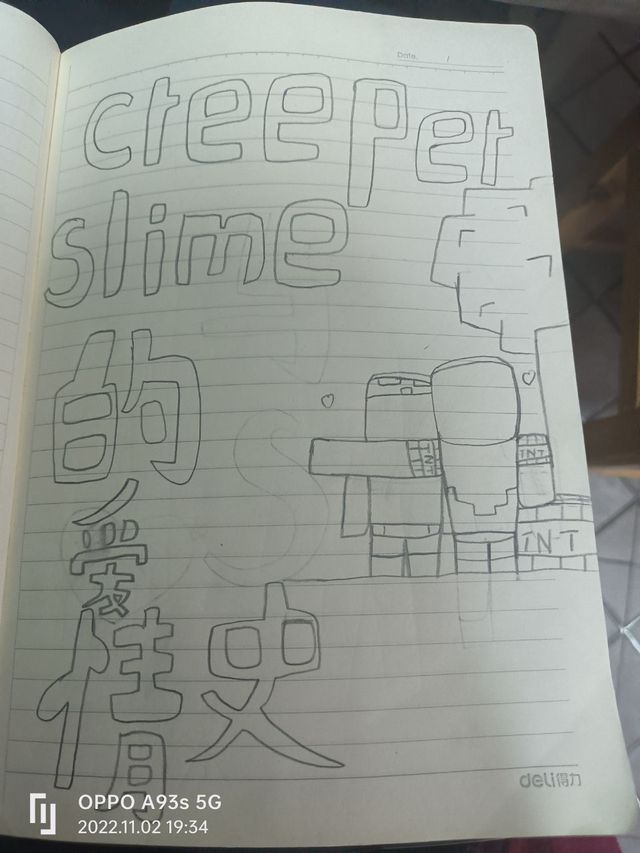 Date. /
creeper
slime
的
爱
情史
TNT
TNT
TNT
deli得力
OPPO A93s 5G
2022.11.02 19:34